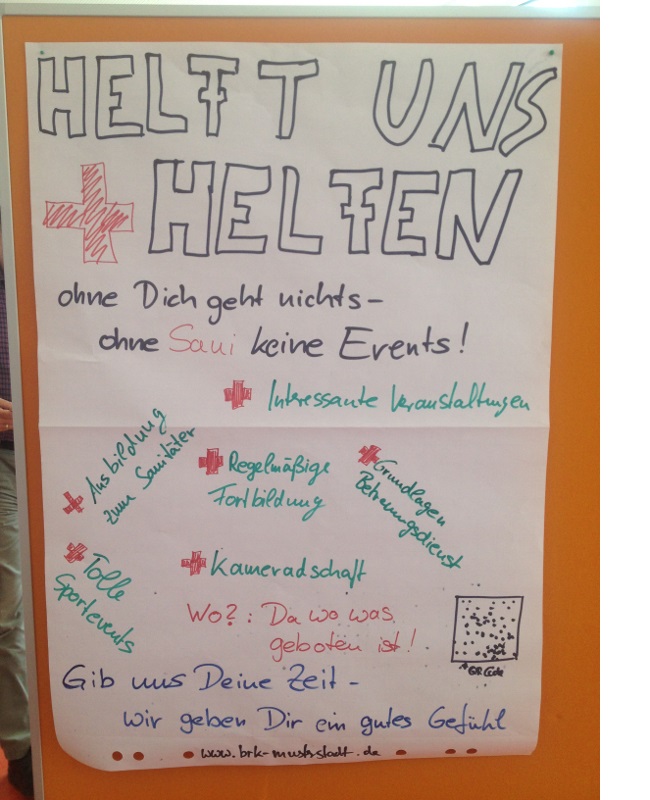 HELFT UNS
HELFEN
ohne Dich geht nichts –
ohne Sani keine Events!
Interessante Veranstaltungen
Ausbildung
zum Sanitäter
Regelmäßige
Fortbildung
Grundlagen
Betreuungsdienst
Tolle
Sportevents
Kameradschaft
Wo?: Da wo was
geboten ist!
QR Code
Gib uns Deine Zeit –
wir geben Dir ein gutes Gefühl
www.brk-musterstadt.de